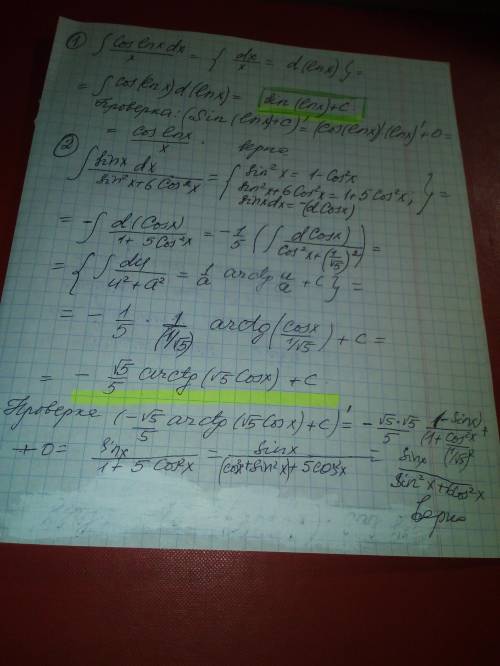 ① ∫ cos lnx dx / x = { dx/x = d(lnx) } =
= ∫ cos(lnx) d(lnx) = sin(lnx)+C.
Проверка: (Sin(lnx)+C)' = (cos(lnx)(lnx)'+0 =
= cos lnx / x. верно
② ∫ sinx dx / (sin²x+6Cos²x) = { sin²x = 1-Cos²x
sin²x+6Cos²x = 1+5Cos²x,
sinxdx = -(dCosx) } =
= -∫ d(Cosx) / (1+5Cos²x) = -1/5 (∫ dCosx / (Cos²x+(1/√5)²) ) =
= { ∫ du / (u²+a²) = 1/a arctg u/a + C } =
= - 1/5 · 1/(1/√5) arctg (cosx / 1/√5) + C =
= - √5/5 arctg (√5 Cosx) + C.
Проверка (-√5/5 arctg(√5Cosx)+C)' = - √5·√5/5 (-Sinx) / (1+Cos²x (√5)² +
+0 = sinx / (1+5Cos²x) = sinx / ((cos²x+sin²x)+5cos²x = sinx / (sin²x+6cos²x
верно